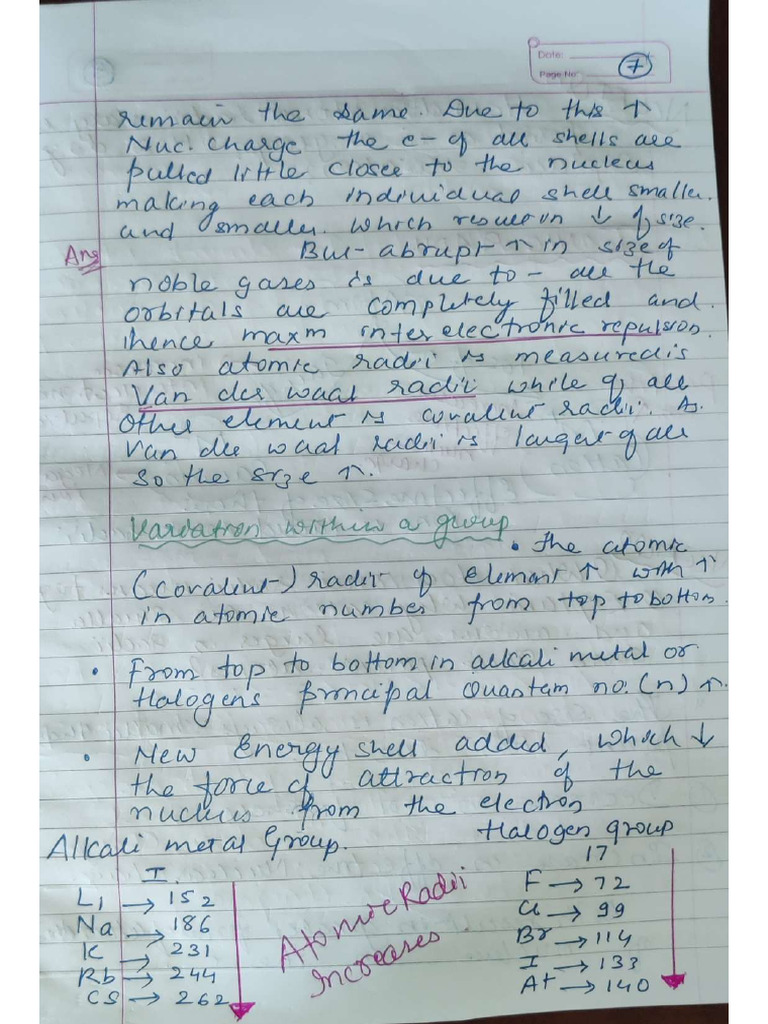 Date:
Page No: 7
remain the same. Due to this ↑
Nuc. charge the e- of all shells are
pulled little closer to the nucleus
making each individual shell smaller
and smaller. which result in ↓ of size.
Ans
But abrupt ↑ in size of
noble gases is due to - all the
orbitals are completely filled and
hence maxm interelectronic repulsion.
Also atomic radii is measured is
Van der waal radii while of all
other element is covalent radii. As
Van der waal radii is largest of all
so the size ↑.
Variation within a group
• The atomic
(covalent) radii of element ↑ with ↑
in atomic number from top to bottom.
• From top to bottom in alkali metal or
Halogens principal quantum no. (n) ↑.
• New Energy shell added, which ↓
the force of attraction of the
nucleus from the electron
Alkali metal Group.
I.
Li → 152
Na → 186
K → 231
Rb → 244
CS → 262
Atomic Radii
Increases
Halogen group
17
F → 72
Cl → 99
Br → 114
I → 133
At → 140